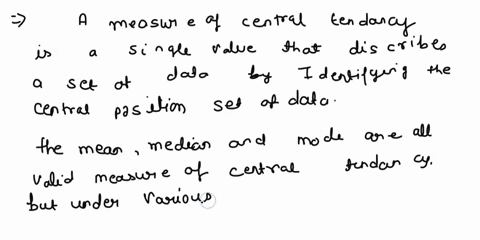 ⇒ A measure of central tendancy
is a single value that discribes
a set of data by Identifying the
central position set of data.
the mean, median and mode are all
valid measure of central tendancy.
but under various